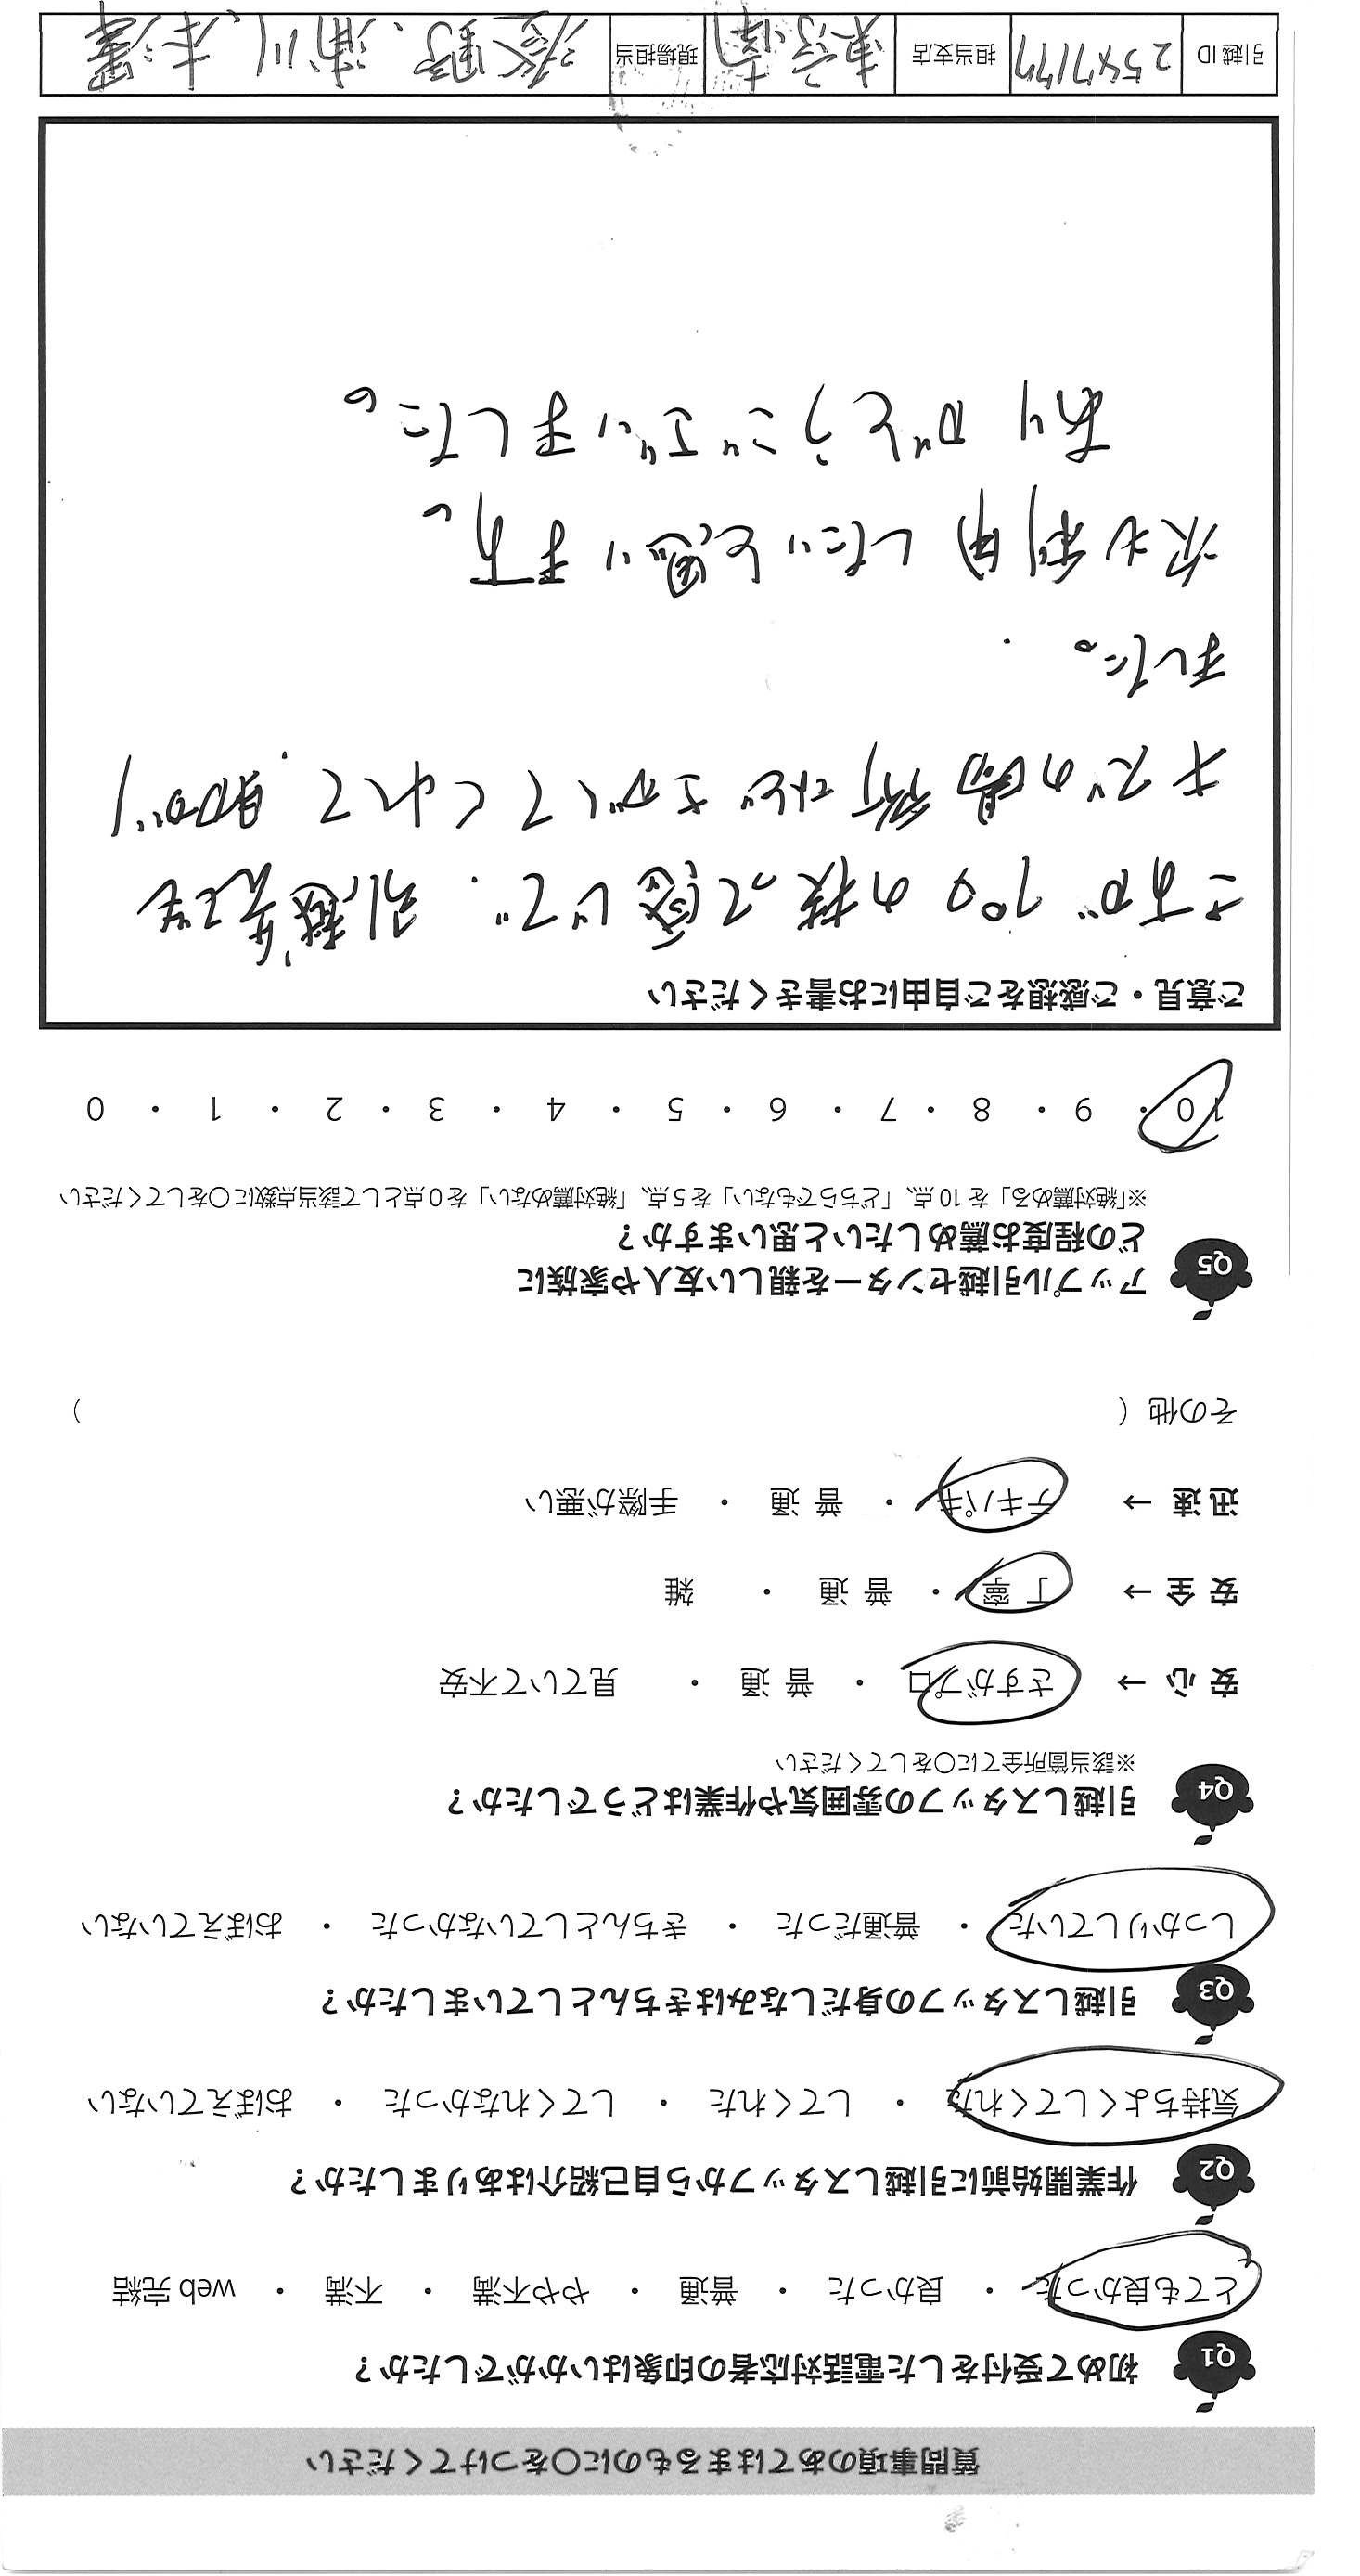 質問事項のあてはまるものに〇をつけてください
Q1 初めて受付をした電話対応者の印象はいかがでしたか？
とても良かった ・ 良かった ・ 普通 ・ やや不満 ・ 不満 ・ web 完結
Q2 作業開始前に引越しスタッフから自己紹介はありましたか？
気持ちよくしてくれた ・ してくれた ・ してくれなかった ・ おぼえていない
Q3 引越しスタッフの身だしなみはきちんとしていましたか？
しっかりしていた ・ 普通だった ・ きちんとしていなかった ・ おぼえていない
Q4 引越しスタッフの雰囲気や作業はどうでしたか？
※該当箇所全てに〇をしてください
安 心 → さすがプロ ・ 普 通 ・ 見ていて不安
安 全 → 丁 寧 ・ 普 通 ・ 雑
迅 速 → テキパキ ・ 普 通 ・ 手際が悪い
その他（ ）
Q5 アップル引越センターを親しい友人や家族に
どの程度お薦めしたいと思いますか？
※「絶対薦める」を 10 点、「どちらでもない」を 5 点、「絶対薦めない」を 0 点として該当点数に〇をしてください
10 ・ 9 ・ 8 ・ 7 ・ 6 ・ 5 ・ 4 ・ 3 ・ 2 ・ 1 ・ 0
ご意見・ご感想をご自由にお書きください
さすがプロの技って感じで、引越先でも
キズの場所などさがしてくれて、助かり
ました。
次も利用したいと思います。
ありがとうございました。
引越 ID 担当支店 東京南 現場担当 浦川、赤澤